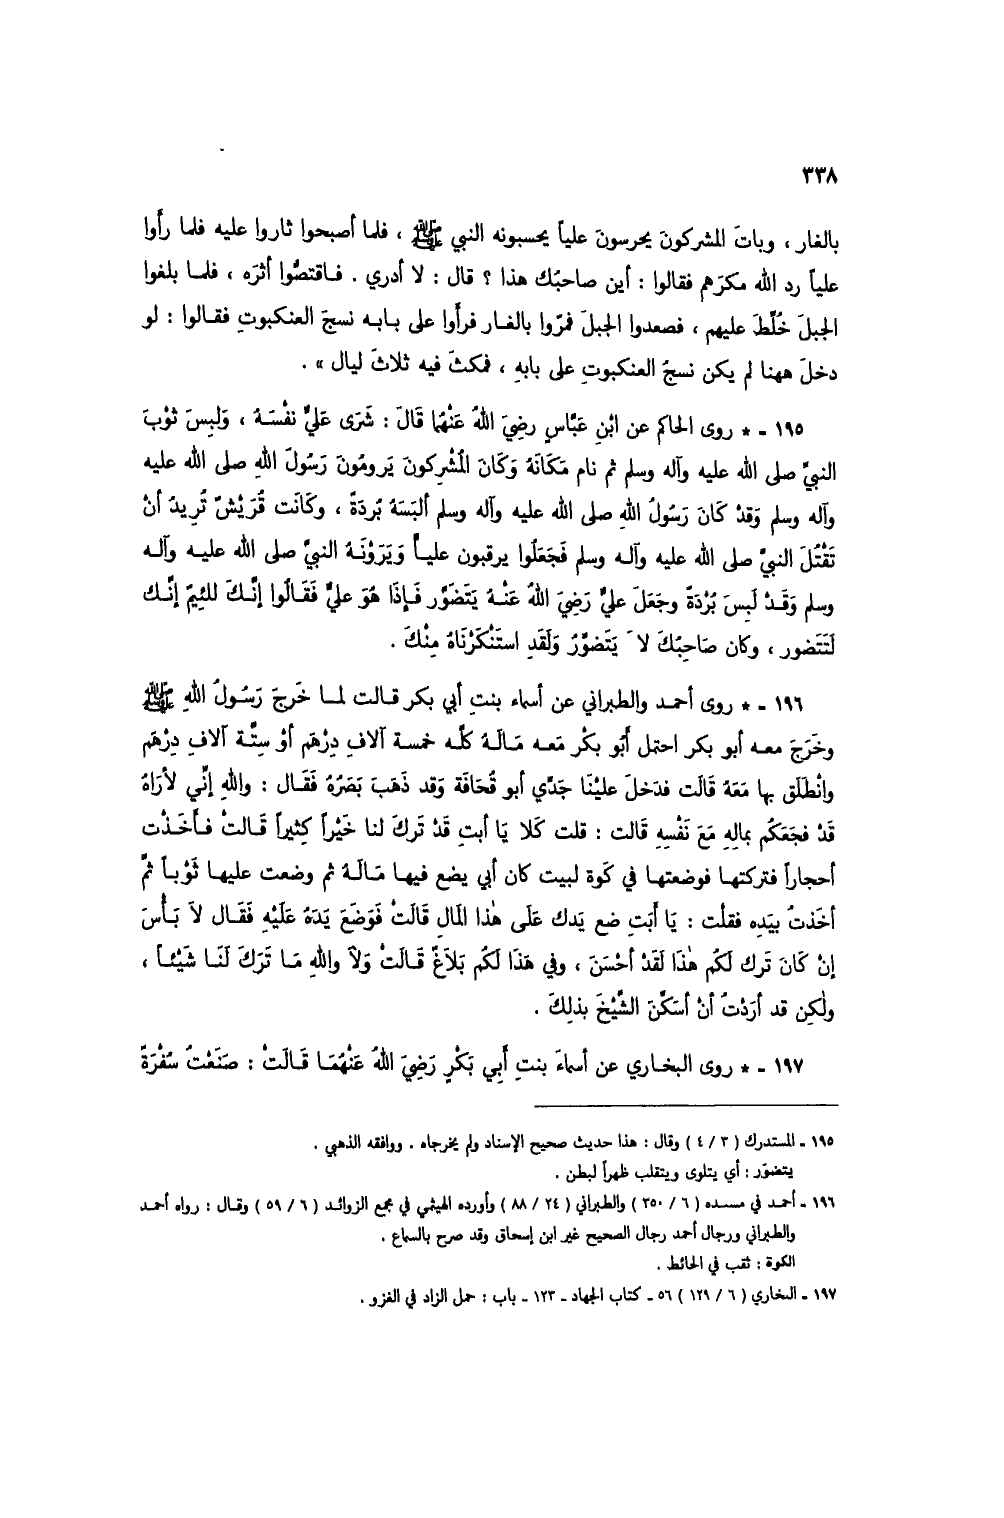 ٣٣٨
بالغار ، وباتَ المشركونَ يحرسونَ علياً يحسبونه النبي ﷺ ، فلما أصبحوا ثاروا عليه فلما رأَوا
علياً رد الله مكرَهم فقالوا : أين صاحبُك هذا ؟ قال : لا أدري . فاقتصُّوا أثرَه ، فلما بلغوا
الجبلَ خُلِّطَ عليهم ، فصعدوا الجبلَ فمرّوا بالغار فرأَوا على بابه نسجَ العنكبوتِ فقالوا : لو
دخلَ ههنا لم يكن نسجُ العنكبوتِ على بابهِ ، فمكثَ فيه ثلاثَ ليال » .
١٩٥ - * روى الحاكم عن ابْنِ عَبَّاسٍ رضِيَ اللهُ عَنْهُما قَالَ : شَرَى عَليٌّ نفْسَهُ ، وَلبِسَ ثوْبَ
النبيِّ صلى الله عليه وآله وسلم ثم نام مَكَانَهُ وَكَانَ المُشْرِكونَ يَرومُونَ رَسُولَ اللهِ صلى الله عليه
وآله وسلم وَقدْ كَانَ رَسُولُ اللهِ صلى الله عليه وآله وسلم ألبَسَهُ بُردَةً ، وكَانَت قُرَيْشٌ تُريدُ أنْ
تَقْتُلَ النبيَّ صلى الله عليه وآله وسلم فَجَعَلُوا يرقبون علياً وَيَرَوْنَهُ النبيَّ صلى الله عليه وآله
وسلم وَقَدْ لَبِسَ بُرْدَةً وجَعَلَ عليٌّ رَضِيَ اللهُ عَنْهُ يَتَضَوَّر فَإِذَا هُوَ عليٌّ فَقَالُوا إنَّكَ للئِيمٌ إنَّك
لَتَتَضور ، وكان صَاحِبُكَ لاَ يَتَضوَّرُ وَلَقَدِ استَنْكَرْنَاهُ مِنْكَ .
١٩٦ - * روى أحمد والطبراني عن أسماء بنتِ أبي بكر قالت لما خَرجَ رَسُولُ اللهِ ﷺ
وخَرَجَ معه أبو بكر احتمل أبُو بكْر مَعه مَالَهُ كلَّه خمسة آلافِ دِرْهَم أوْ سِتَّة آلافِ دِرْهَم
وانْطَلَق بها مَعَهُ قَالَت فدَخلَ عليْنَا جَدِّي أبو قُحَافَة وَقد ذَهَبَ بَصَرُهُ فَقَال : واللهِ إنِّي لأرَاهُ
قَدْ فجَعَكُم بمالِهِ مَعَ نَفْسِهِ قَالت : قلت كَلا يَا أبتِ قَدْ تَركَ لنا خَيْراً كثِيراً قَالتْ فأَخَذْت
أحجاراً فتركتها فوضعتها في كَوة لبيت كان أبي يضع فيها مَالَهُ ثم وضعت عليها ثَوْباً ثُمَّ
أخَذتُ بيَدِه فقلْت : يَا أَبَتِ ضع يَدك عَلَى هٰذا المَالِ قَالَتْ فَوَضَعَ يَدَهُ عَلَيْهِ فَقَال لاَ بَأْسَ
إنْ كَانَ تَرك لَكُم هٰذَا لَقَدْ أحْسَنَ ، وفي هَذَا لَكُم بَلاَغٌ قَالَتْ وَلاَ واللهِ مَا تَرَكَ لَنَا شَيْئاً ،
ولٰكِن قد أرَدْتُ أنْ أسَكِّنَ الشَّيْخَ بذلِكَ .
١٩٧ - * روى البخاري عن أسماءَ بنتِ أَبِي بَكْرٍ رَضِيَ اللهُ عَنْهُمَا قَالَتْ : صَنَعْتُ سُفْرَةَ
١٩٥ - المستدرك ( ٣ / ٤ ) وقال : هذا حديث صحيح الإسناد ولم يخرجاه . ووافقه الذهبي .
يتضوّر : أي يتلوى ويتقلب ظهراً لبطن .
١٩٦ - أحمد في مسنده ( ٦ / ٣٥٠ ) والطبراني ( ٢٤ / ٨٨ ) وأورده الهيثمي في مجمع الزوائد ( ٦ / ٥٩ ) وقال : رواه أحمد
والطبراني ورجال أحمد رجال الصحيح غير ابن إسحاق وقد صرح بالسماع .
الكوة : ثقب في الحائط .
١٩٧ - البخاري ( ٦ / ١٢٩ ) ٥٦ - كتاب الجهاد - ١٢٣ - باب : حمل الزاد في الغزو .